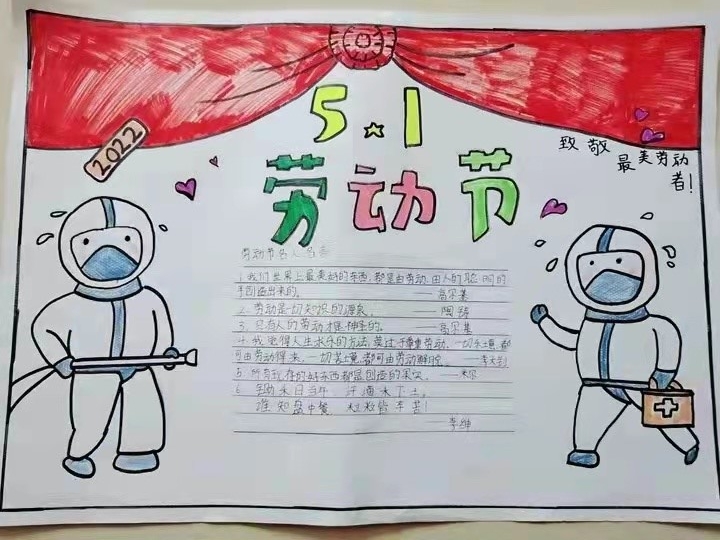 2022
5.1
劳动节
致敬
最美劳动
者!
劳动节名人名言
1. 我们世界上最美好的东西,都是由劳动、由人的聪明的
手创造出来的。——高尔基
2. 劳动是一切知识的源泉。——陶铸
3. 只有人的劳动才是神圣的。——高尔基
4. 我觉得人生求乐的方法,莫过于尊重劳动。一切乐境,都
可由劳动得来,一切苦境,都可由劳动解脱。——李大钊
5. 所有现存的好东西都是创造的果实。——米尔
6. 锄禾日当午,汗滴禾下土。
谁知盘中餐,粒粒皆辛苦!
——李绅